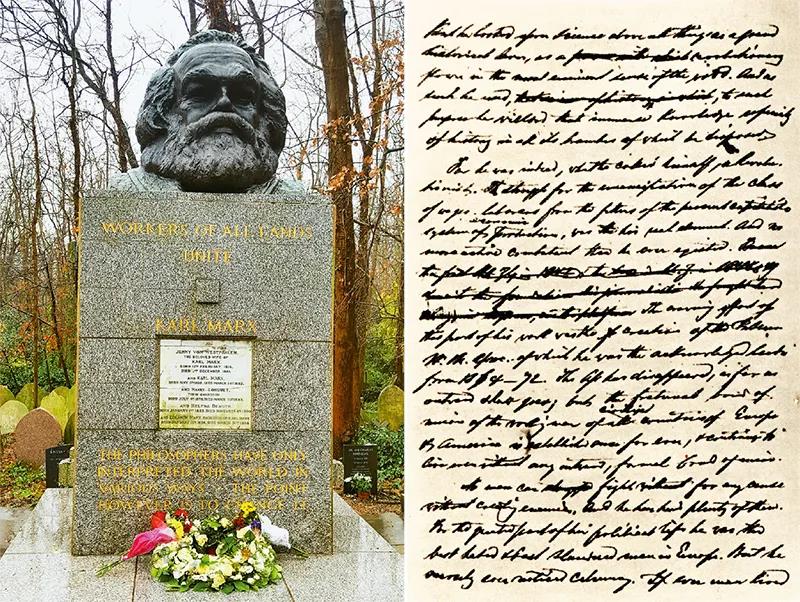 WORKERS OF ALL LANDS
UNITE
KARL MARX
JENNY VON WESTPHALEN,
THE BELOVED WIFE OF
KARL MARX
BORN 12TH FEBRUARY 1814,
DIED 2ND DECEMBER 1881.
AND KARL MARX
BORN MAY 5TH 1818, DIED MARCH 14TH 1883.
AND HARRY LONGUET,
THEIR GRANDSON
BORN JULY 4TH 1878, DIED MARCH 20TH 1883.
AND HELENE DEMUTH
THE PHILOSOPHERS HAVE ONLY
INTERPRETED THE WORLD IN
VARIOUS WAYS · THE POINT
HOWEVER IS TO CHANGE IT
For he looked upon science above all things as a grand
historical lever, as a revolutionary
power in the most eminent sense of the word. And as
such he used, to such
purpose he wielded that immense knowledge, especially
of history in all its branches of which he disposed
For he was indeed, what he called himself, a Revolu-
tionist. The struggle for the emancipation of the class
of wages-labourers from the fetters of the present capitalist
system of economic production, was his real element. And no
more active combatant than he ever existed.
The crowning effort of
this part of his work was the creation of the
of which he was the acknowledged leader
from 1864–72. The has disappeared, as far as
outward show goes; but the fraternal bond of
union of the men of all civilised countries of Europe
& America is established once for ever, & continues to
live even without any outward, formal bond of union.
No man can fight for any cause
without creating enemies. And he has had plenty of them.
For the greater part of his political life he was the
best hated & best slandered man in Europe. But he
scarcely ever noticed calumny. If ever man lived